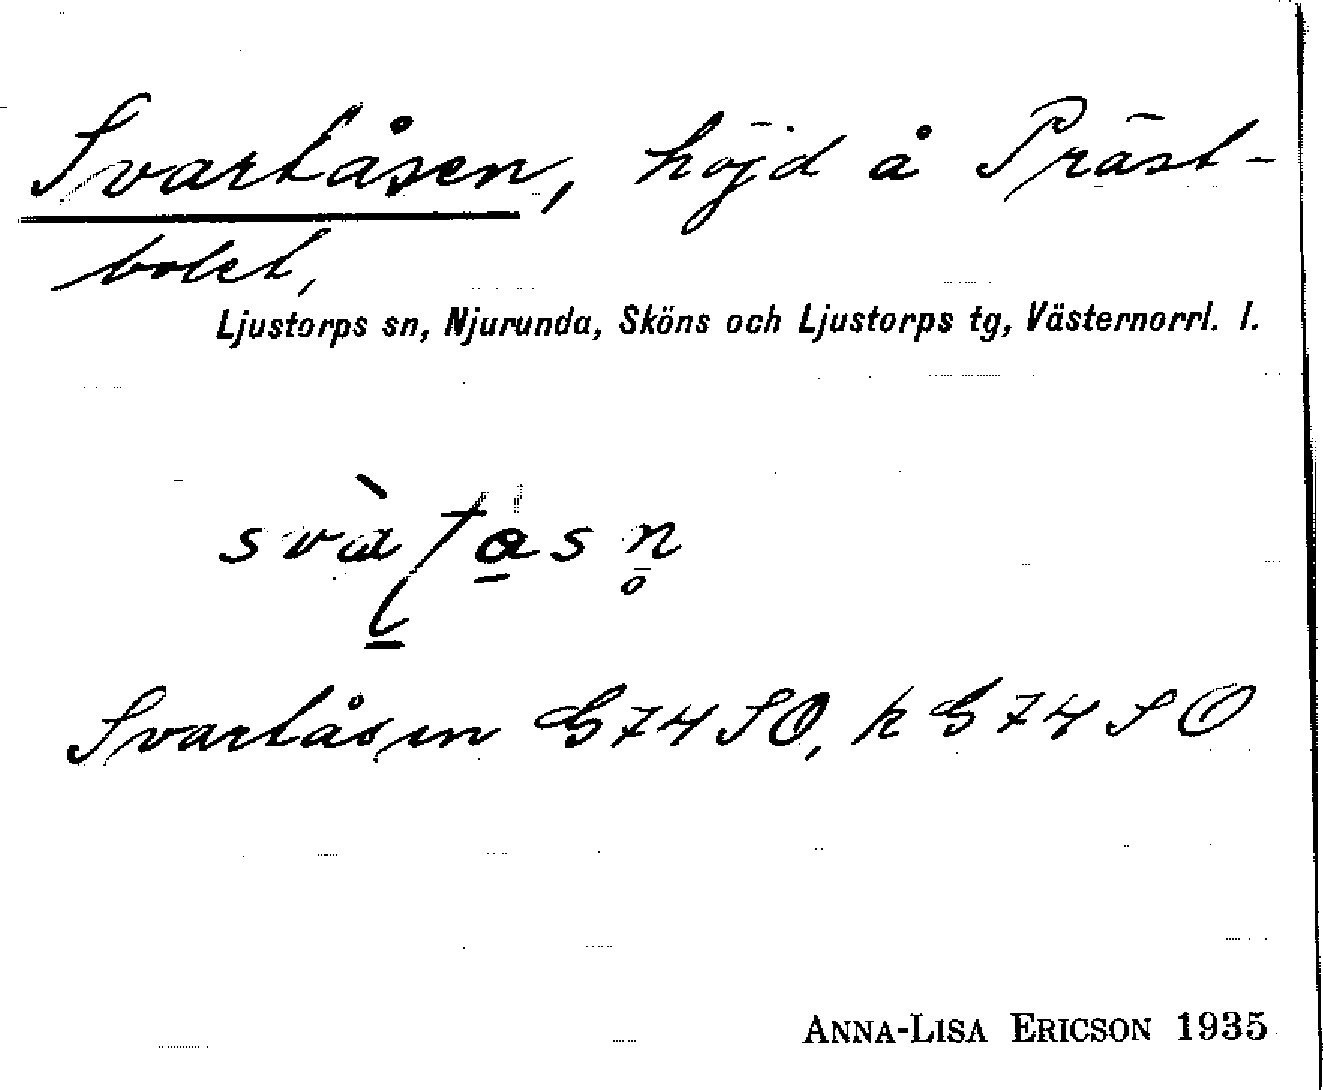 Svartåsen, höjd å Präst-
bolet,
Ljustorps sn, Njurunda, Sköns och Ljustorps tg, Västernorrl. l.
Svartåsen G74SO, k G74SO
ANNA-LISA ERICSON 1935